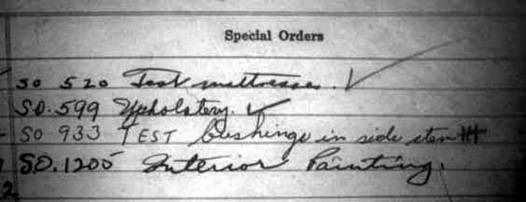 Special Orders
SO 520 Test mattresses. ✓
S.O. 599 Upholstery. ✓
SO 933 TEST Cushings in side
S.O. 1205 Interior Painting.
2